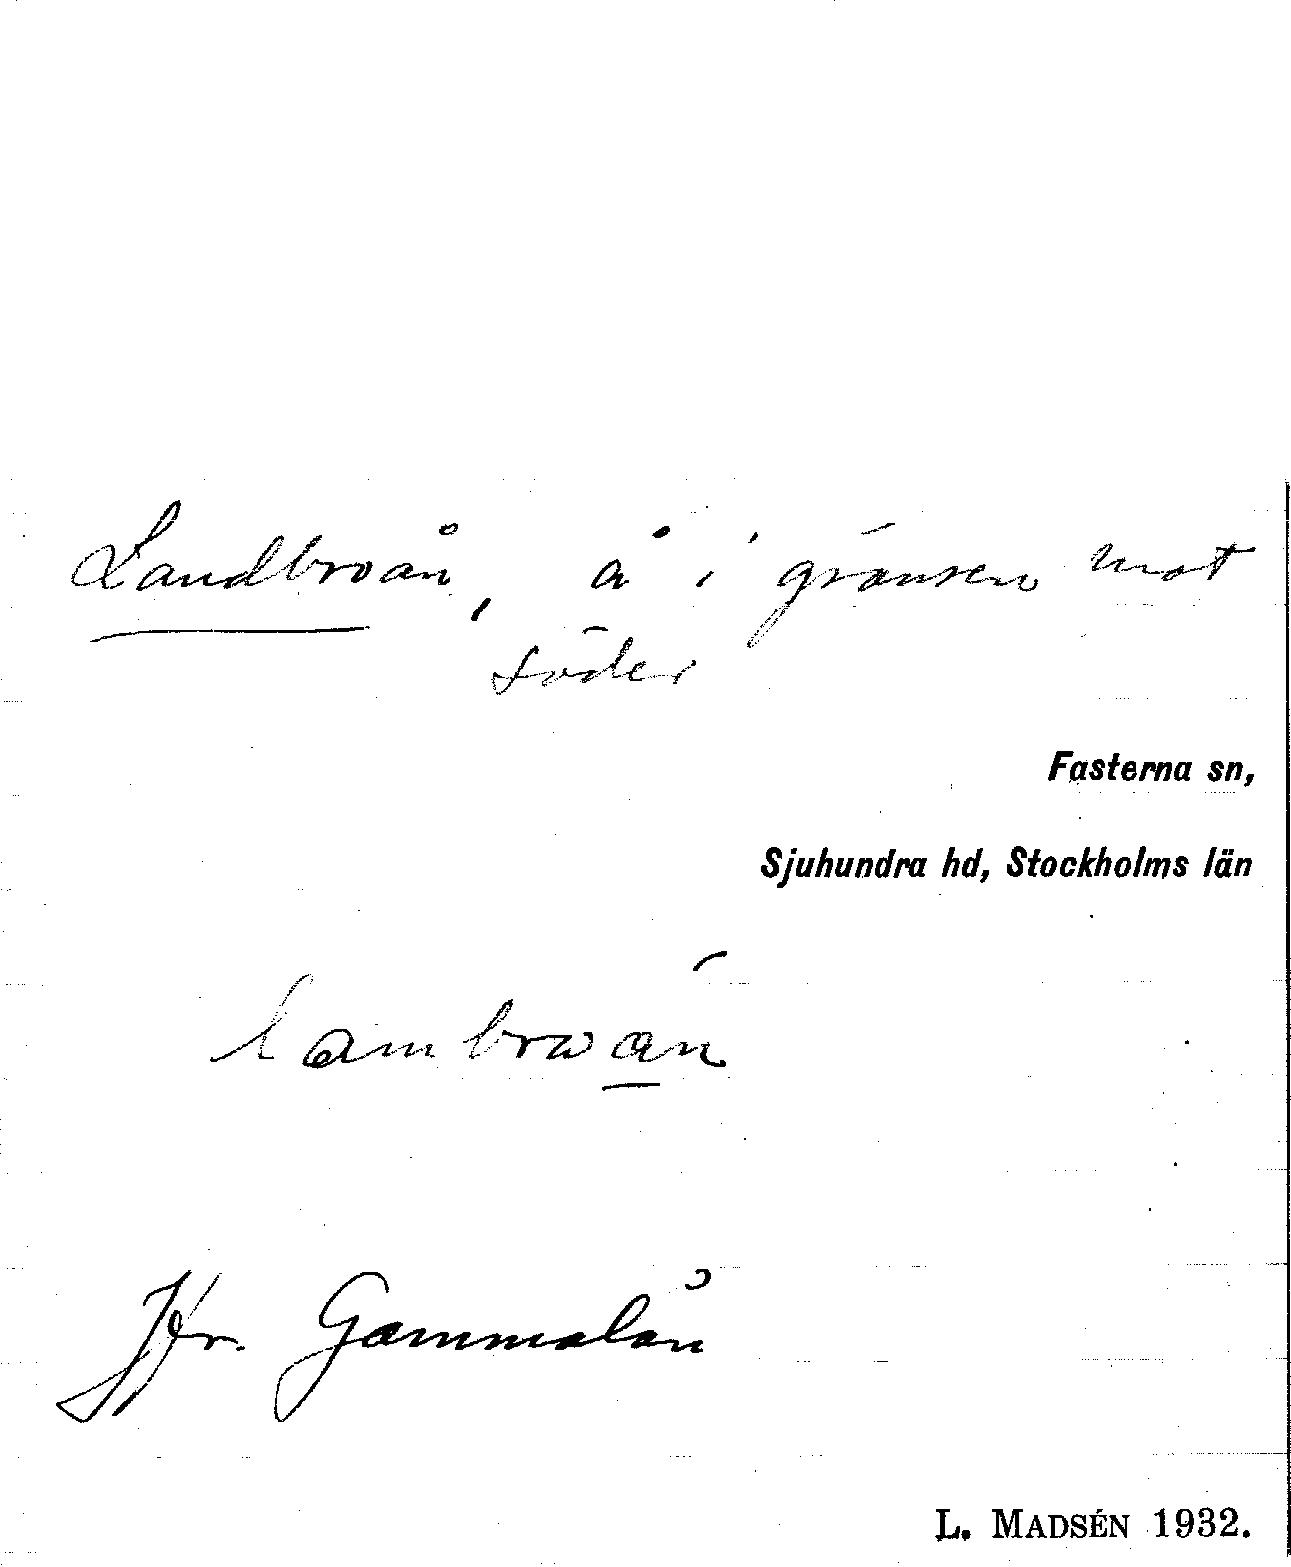 Landbroån, å i gränsen mot
söder
Fasterna sn,
Sjuhundra hd, Stockholms län
lambrωán
Jfr. Gammalån
L. MADSÉN 1932.